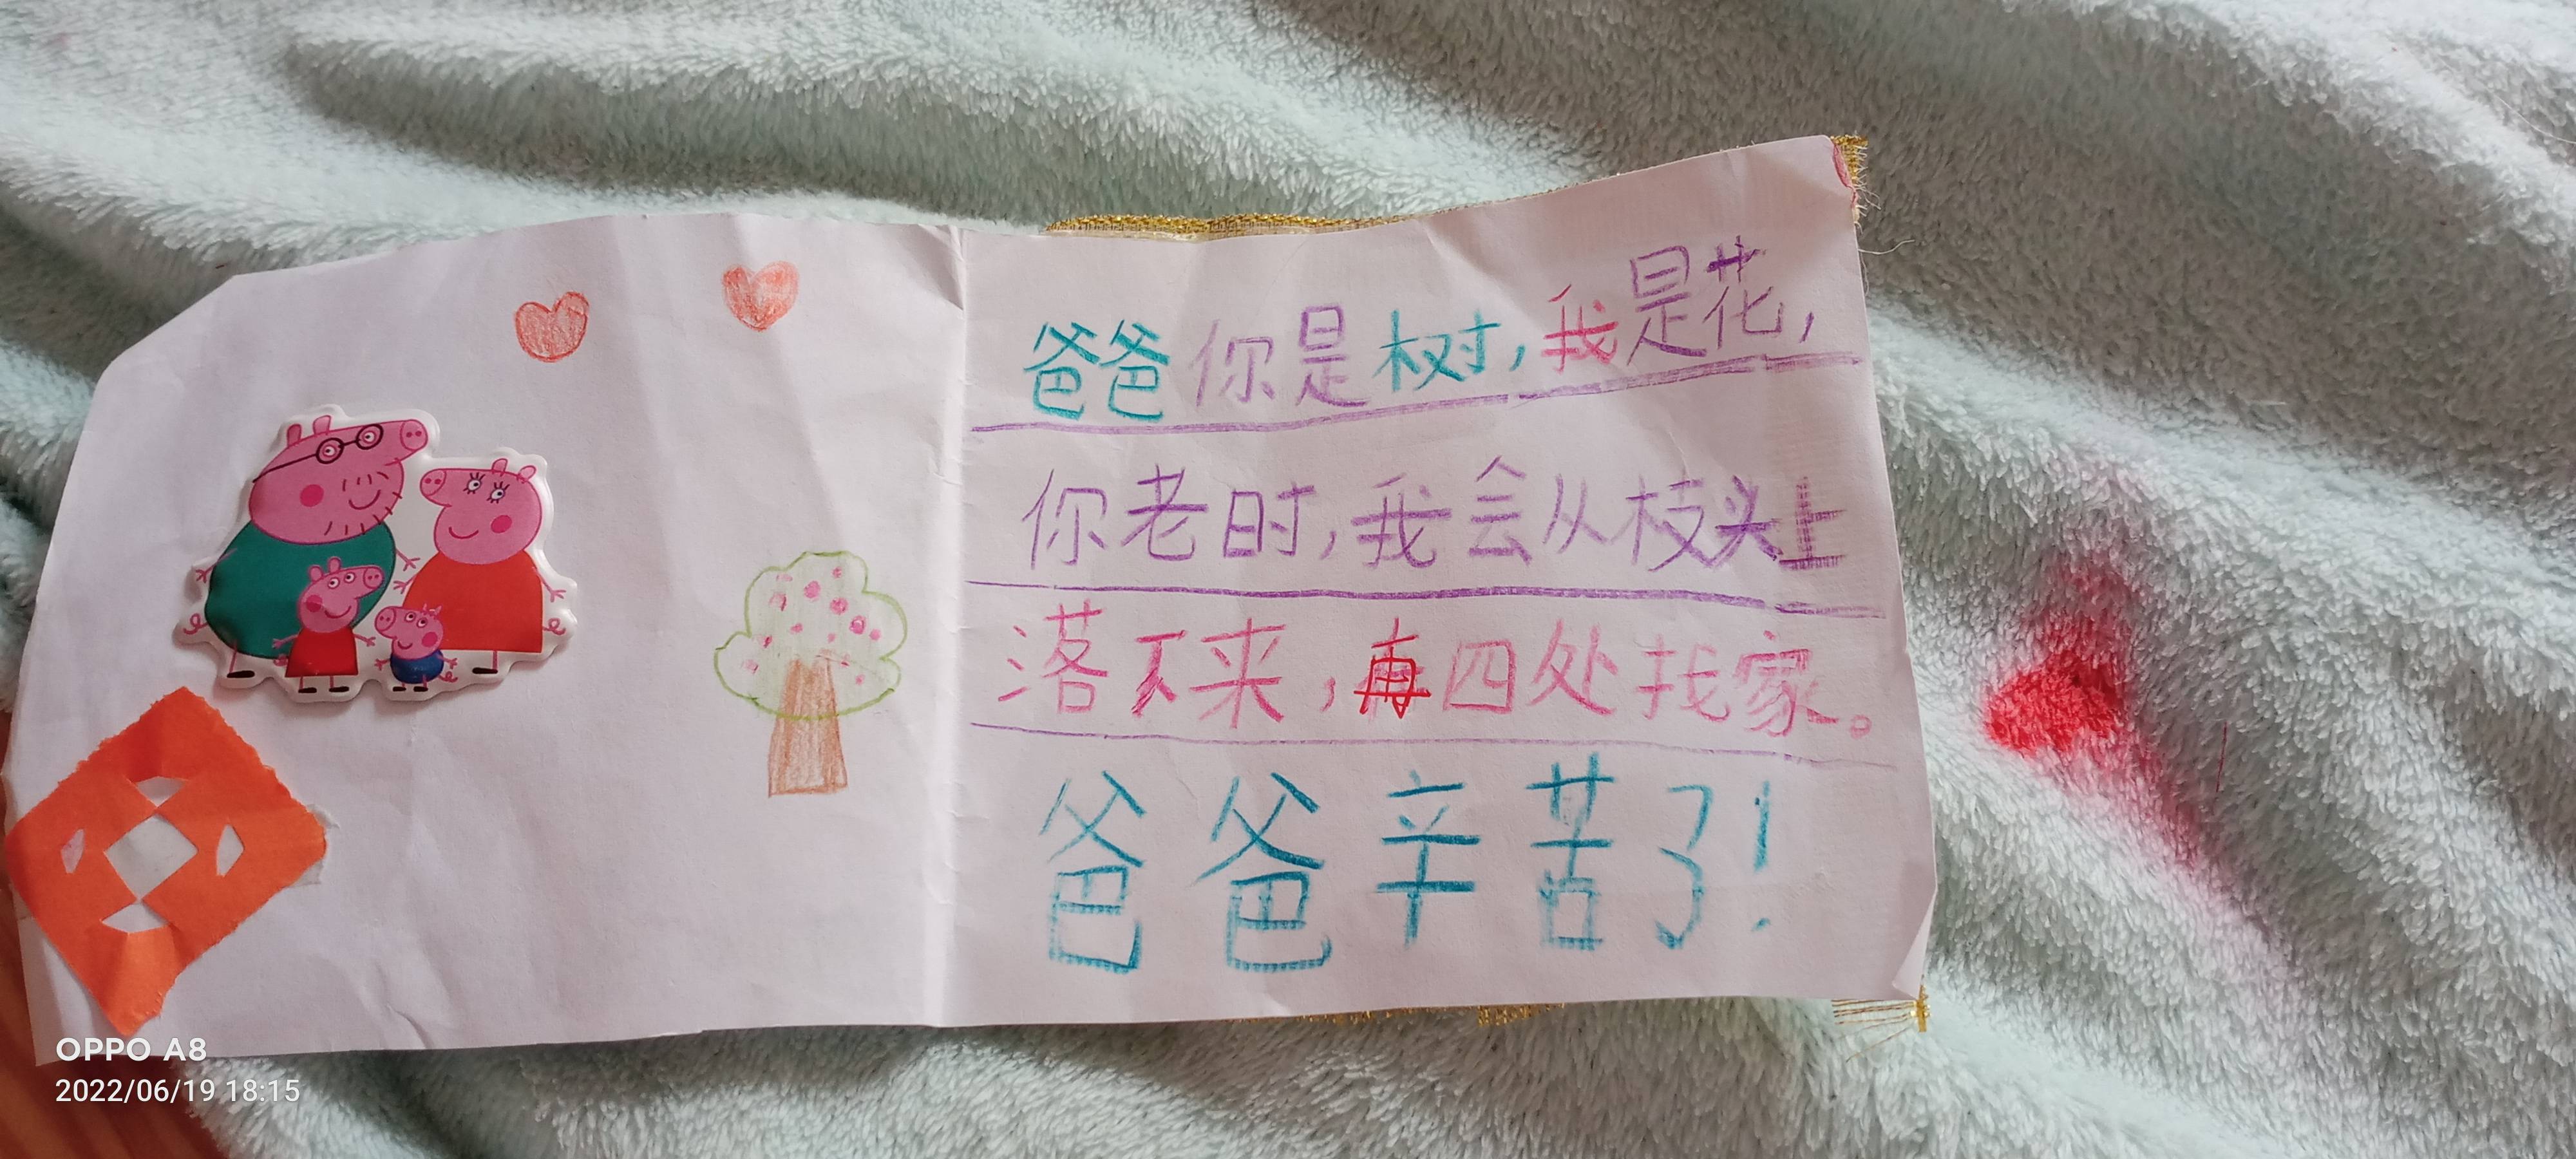 爸爸你是树，我是花，
你老时，我会从枝头上
落下来，再四处找家。
爸爸辛苦了！
OPPO A8
2022/06/19 18:15